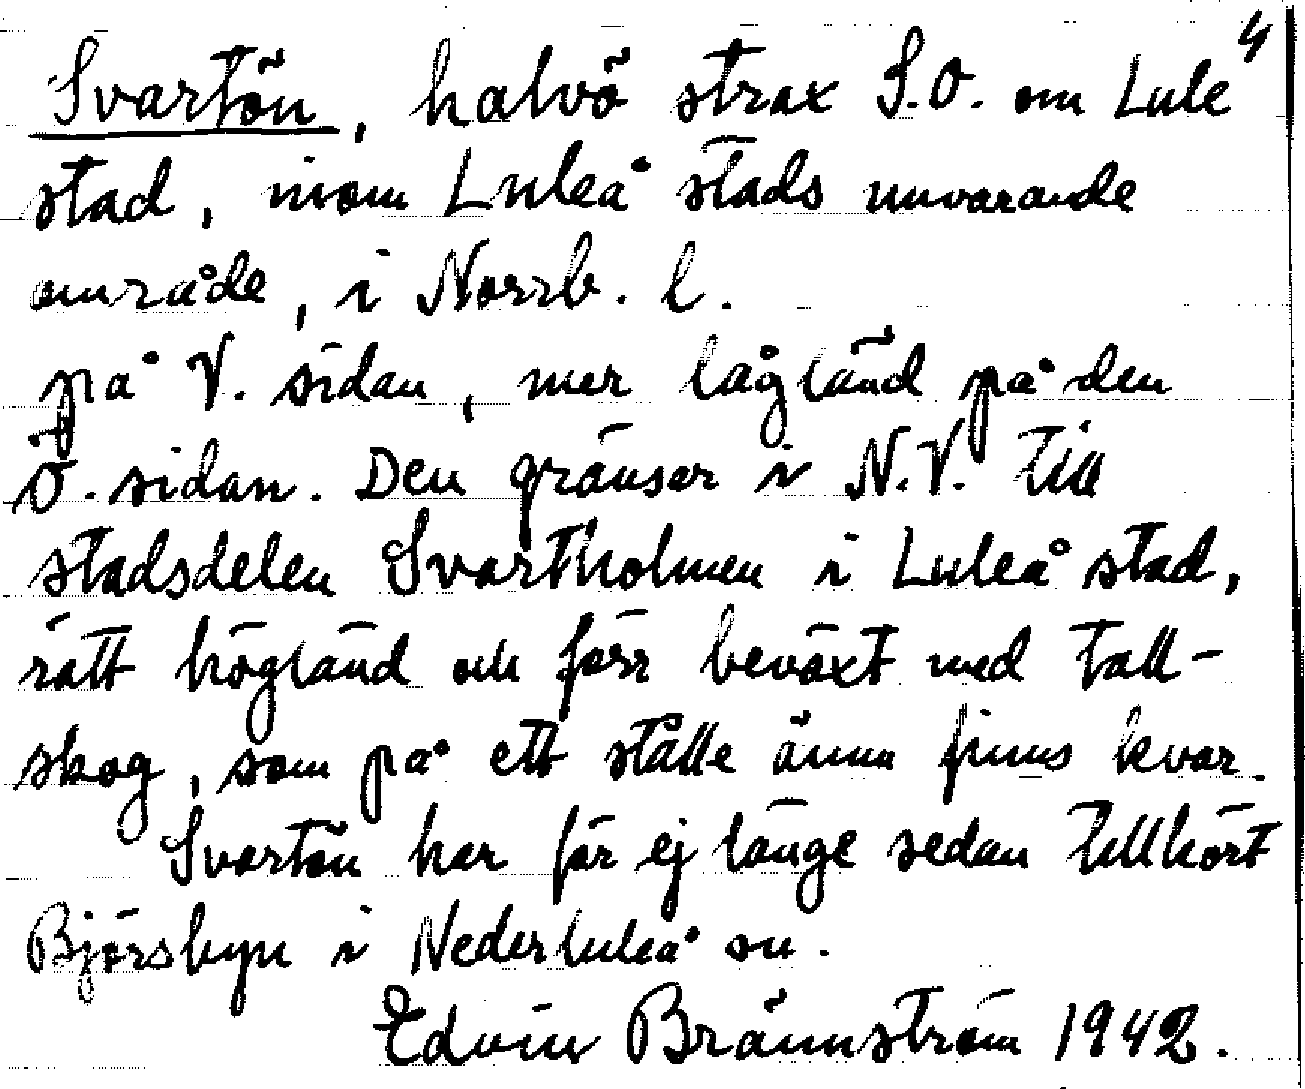 4
Svartön, halvö strax S.O. om Lule
stad, inom Luleå stads nuvarande
område, i Norrb. l.
på V. sidan, mer lågländ på den
Ö. sidan. Den gränsar i N.V. till
stadsdelen Svartholmen i Luleå stad,
rätt högländ och förr beväxt med tall-
skog, som på ett ställe ännu finns kvar.
Svartön har för ej länge sedan tillhört
Björsbyn i Nederluleå sn.
Edvin Brännström 1942.